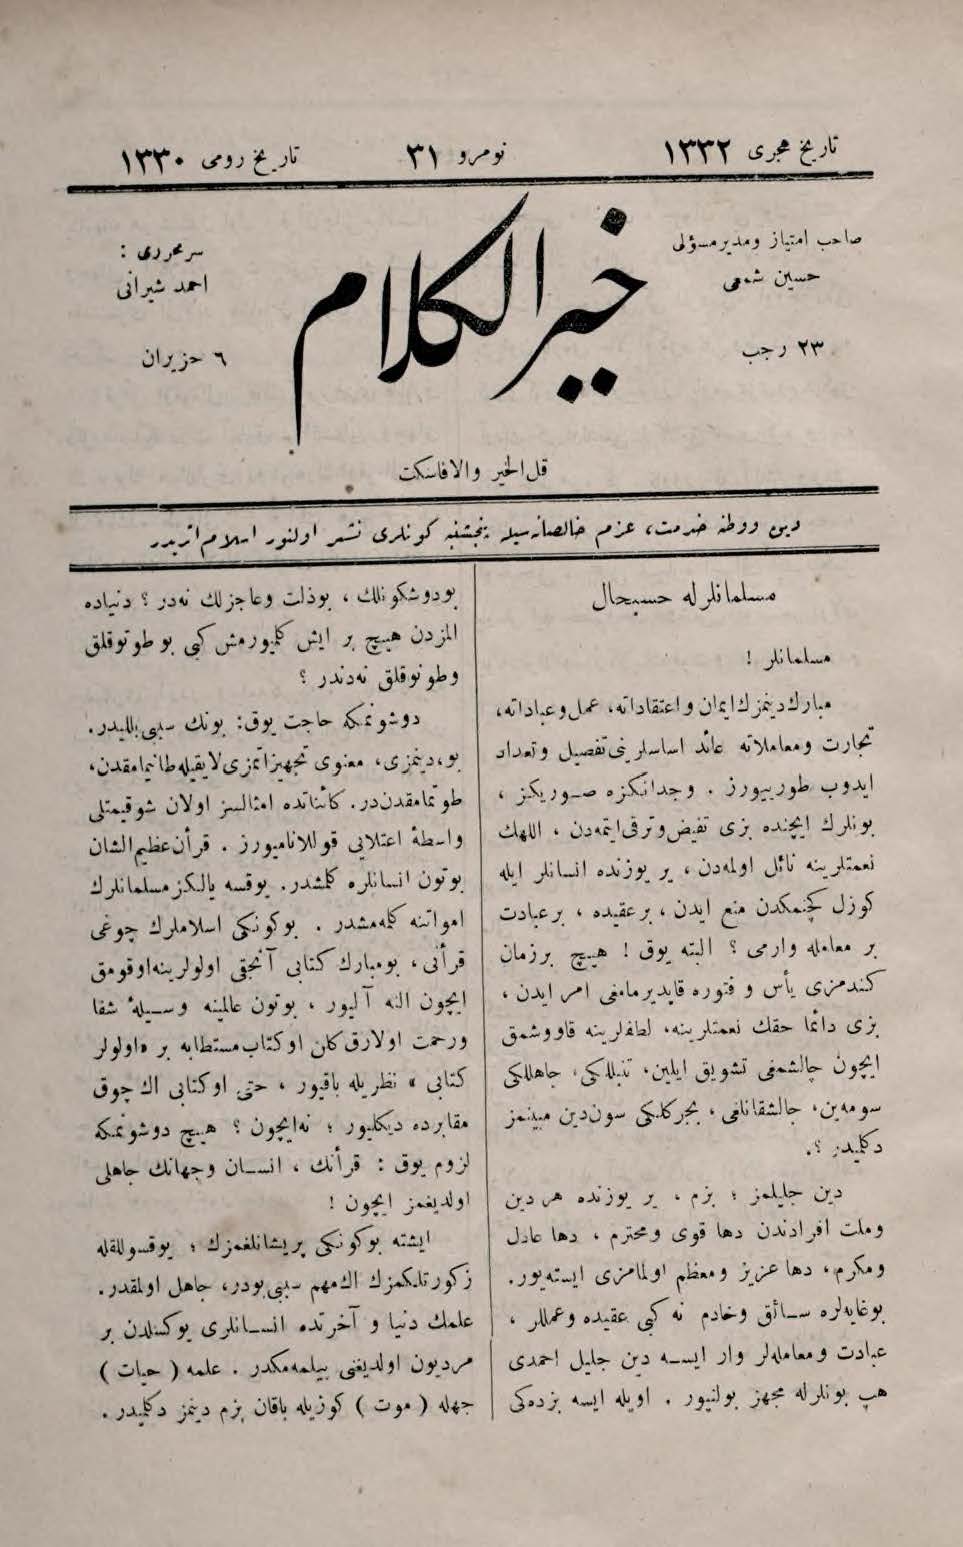 تاريخ هجرى ١٣٣٢
نومرو ٣١
تاريخ رومى ١٣٣٠
صاحب امتياز ومدير مسؤلى
حسين شمعى
٢٣ رجب
خير الكلام
سر محررى :
احمد شيرانى
٦ حزيران
قل الخير والا فاسكت
دين ووطنه خدمت، عزم خالصانه سيله پنجشنبه كونلرى نشر اولنور اسلام اثريدر
مسلمانلرله حسبحال
مسلمانلر !
مبارك دينمزك ايمان و اعتقاداته، عمل وعباداته،
تجارت ومعاملاته عائد اساسلرينى تفصيل وتعداد
ايدوب طورييورز . وجدانكزه صوريكز ،
بونلرك ايچنده بزى تفيض وترقى ايتمه‌دن ، اللهك
نعمتلرينه نائل اولمه‌دن ، ير يوزنده انسانلر ايله
كوزل كچنمكدن منع ايدن ، بر عقيده ، بر عبادت
بر معامله وارمى ؟ البته يوق ! هيچ بر زمان
كندمزى يأس و فتوره قاپديرمامغى امر ايدن ،
بزى دائما حقك نعمتلرينه، لطفلرينه قاووشمق
ايچون چالشمغى تشويق ايلين، تنبللكى، جاهللكى
سومه‌ين، چالشقانلغى ، بجركليكى سون دين مبينمز
دكلميدر ؟.
دين جليلمز ؛ بزم ، ير يوزنده هر دين
وملت افرادندن دها قوى ومحترم ، دها عادل
ومكرم، دها عزيز ومعظم اولمامزى ايسته‌يور.
بوغايه‌لره سائق وخادم نه كبى عقيده وعمللر ،
عبادت ومعامله‌لر وار ايسه دين جليل احمدى
هپ بونلرله مجهز بولنيور . اويله ايسه بزده‌كى
بودوشكونلك ، بوذلت وعاجزلك نه‌در ؟ دنياده
المزدن هيچ بر ايش كلميورمش كبى بو طوتوقلق
وطونوقلق نه‌دندر ؟
دوشونمكه حاجت يوق: بونك سببى بلليدر.
بو، دينمزى، معنوى تجهيزاتمزى لايقيله طانيمامقدن،
طوتمامقدن‌در. كائناتده امثالسز اولان شو قيمتلى
واسطۀ اعتلايى قوللانامیورز . قرأن عظيم الشان
بوتون انسانلره كلمشدر. يوقسه يالكز مسلمانلرك
امواتنه كلمه‌مشدر . بوكونكى اسلاملرك چوغى
قرأنى، بومبارك كتابى آنجق اولولرينه اوقومق
ايچون النه آليور ، بوتون عالمينه وسيلۀ شفا
ورحمت اولارق كلن اوكتاب مستطابه بر «اولولر
كتابى » نظريله باقيور ، حتى اوكتابى اك چوق
مقابرده ديكليور ؛ نه‌ايچون ؟ هيچ دوشونمكه
لزوم يوق : قرأنك ، انسان وجهانك جاهلى
اولديغمز ايچون !
ايشته بوكونكى پريشانلغمزك ؛ يوقسوللقله
زكورتلكمزك اك مهم سببى بودر، جاهل اولمقدر.
علمك دنيا و آخرتده انسانلرى يوكسلدن بر
مرديون اولديغنى بيلمه‌مكدر . علمه ( حيات )
جهله ( موت ) كوزيله باقان بزم دينمز دكلميدر .